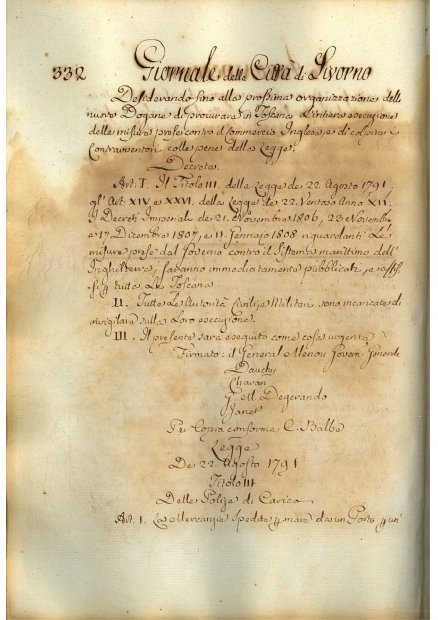 332 Giornale della Città di Livorno
Desiderando fino alla prossima organizzazione delle
nuove Dogane di procurare in Toscana l'intiera esecuzione
delle misure prese contro il Commercio Inglese, e di colpire i
Contravventori colle pene della Legge.
Decreta.
Art: I. Il Titolo III. della Legge de 22. Agosto 1791.
gl'Art: XIV e XXVI. della Legge de 22. Ventoso Anno XII.
i Decreti Imperiali de 21. Novembre 1806, 22 Novembre
e 17. Dicembre 1807, e 11. Gennajo 1808 riguardanti le
misure prese dal Governo contro il Sistema maritimo dell'
Inghilterra, saranno immediatamente pubblicati, e
in tutta la Toscana
II. Tutte le Autorità Civili, e Militari sono incaricate di
invigilare sulla loro esecuzione.
III. Il presente sarà eseguito come cosa urgente
Firmato: il General Menou Govern: Generale
Dauchy
Chaban
G. M. Degerando
Janet
Per Copia conforme C. Balbe
Legge
De 22 Agosto 1791
Titolo III
Delle Polize di Carico
Art. 1. Le Mercanzie Spedite mare da un Porto un'